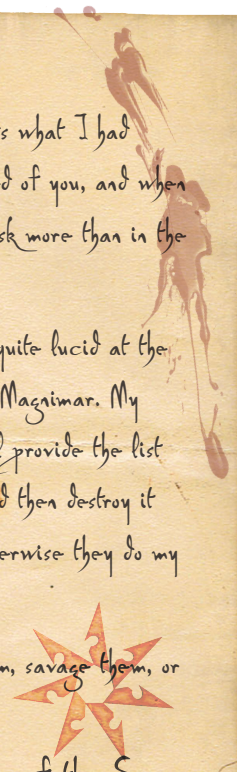 what I had
of you, and when
more than in the
quite lucid at the
Magnimar. My
provide the list
then destroy it
they do my
savage them, or